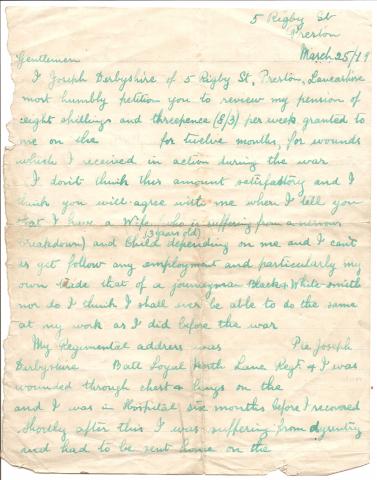 5 Rigby St
Preston
March 25/19
Gentlemen
I Joseph Derbyshire of 5 Rigby St, Preston, Lancashire
most humbly petition you to review my pension of
eight shillings and threepence (8/3) per week granted to
me on the for twelve months, for wounds
which I received in action during the war
I don't think this amount satisfactory and I
think you will agree with me when I tell you
that I have a Wife (who is suffering from a nervous
breakdown) and Child (3 years old) depending on me and I can't
as yet follow any employment and particularly my
own trade that of a journeyman Black & White smith
nor do I think I shall ever be able to do the same
at my work as I did before the war
My Regimental address was Pte Joseph
Derbyshire Batt Loyal North Lanc Regt. & I was
wounded through chest & lungs on the
and I was in Hospital six months before I recovered
Shortly after this I was suffering from dysentry
and had to be sent home on the